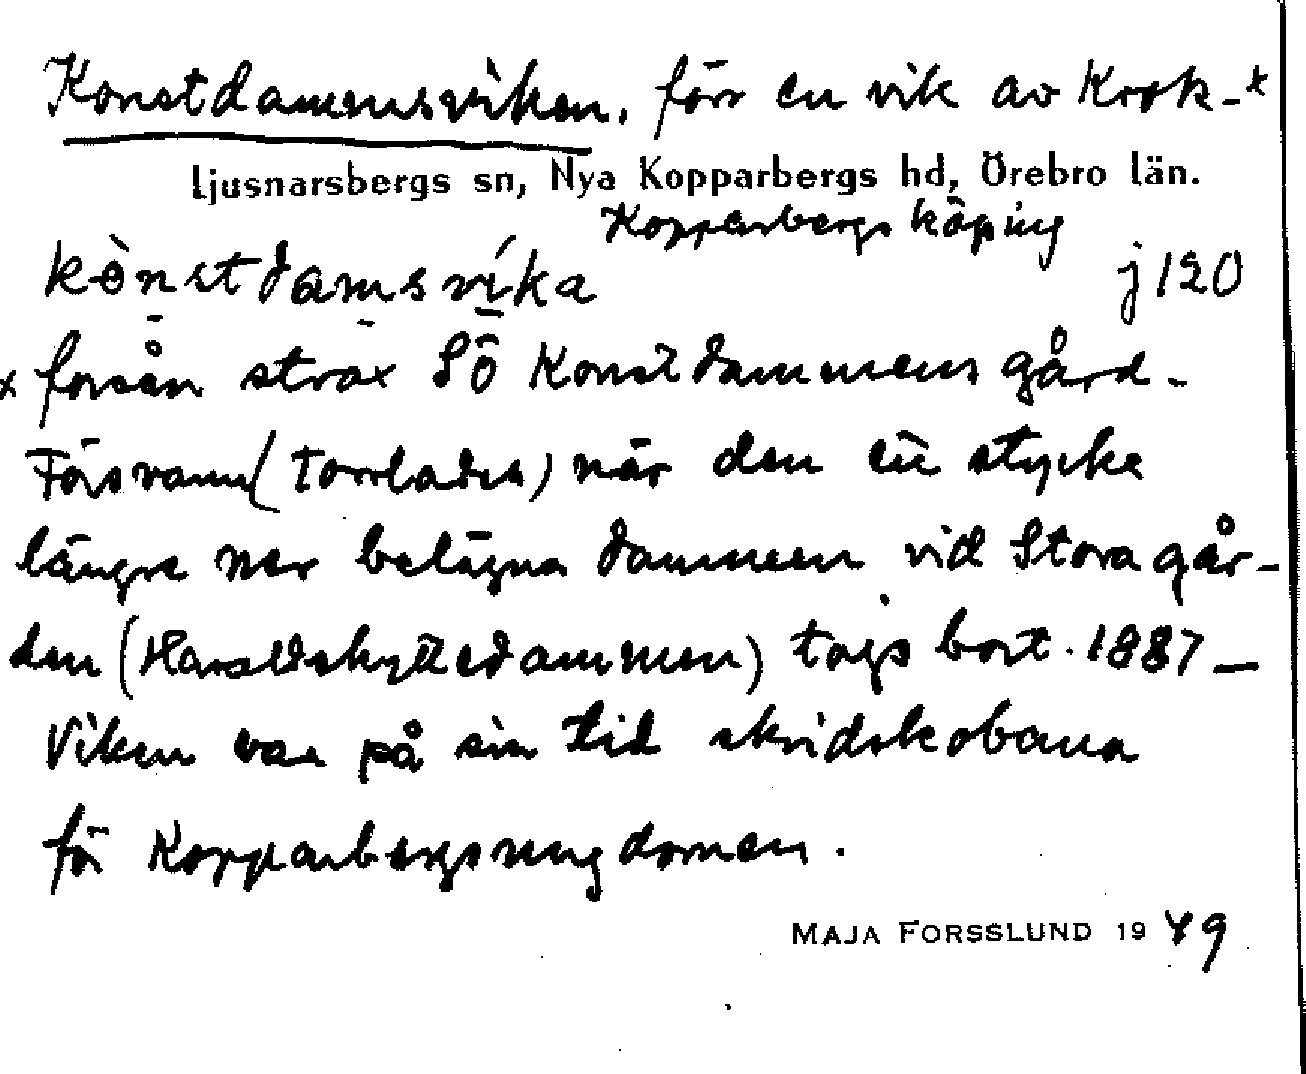 Konstdammensviken, förr en vik av Krok-x
Ljusnarsbergs sn, Nya Kopparbergs hd, Örebro län.
Kopparbergs köping
kònstdamsvíka j 120
x forsån strax SÖ Konstdammens gård.
Försvann (torrlades) när den ett stycke
längre ner belägna dammen vid Stora går-
den (Haraldskyttedammen) togs bort. 1887 –
Viken var på sin tid skridskobana
för Kopparbergsungdomen.
MAJA FORSSLUND 1949